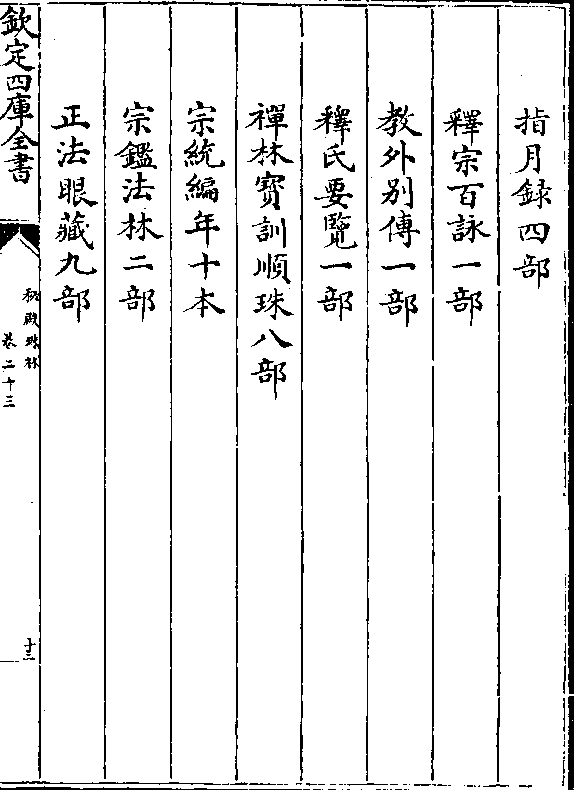 指月録四部
釋宗百詠一部
教外别傳一部
釋氏要覽一部
禪林寳訓順珠八部
宗統編年十本
宗鑑法林二部
正法眼藏九部
欽定四庫全書
秘殿珠林
卷二十三
十三